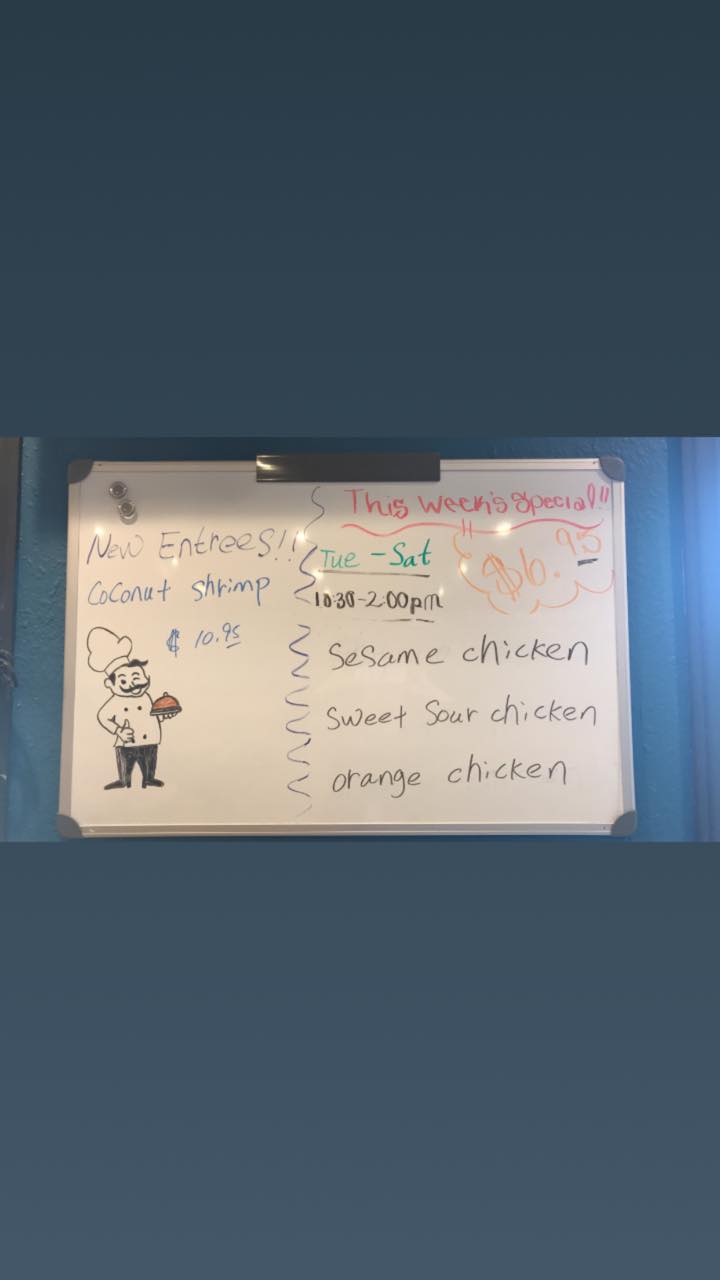 New Entrees!!
Coconut shrimp
$ 10.95
This Week's Special!!
Tue - Sat
$6.95
10:30-2:00pm
Sesame chicken
Sweet Sour chicken
orange chicken